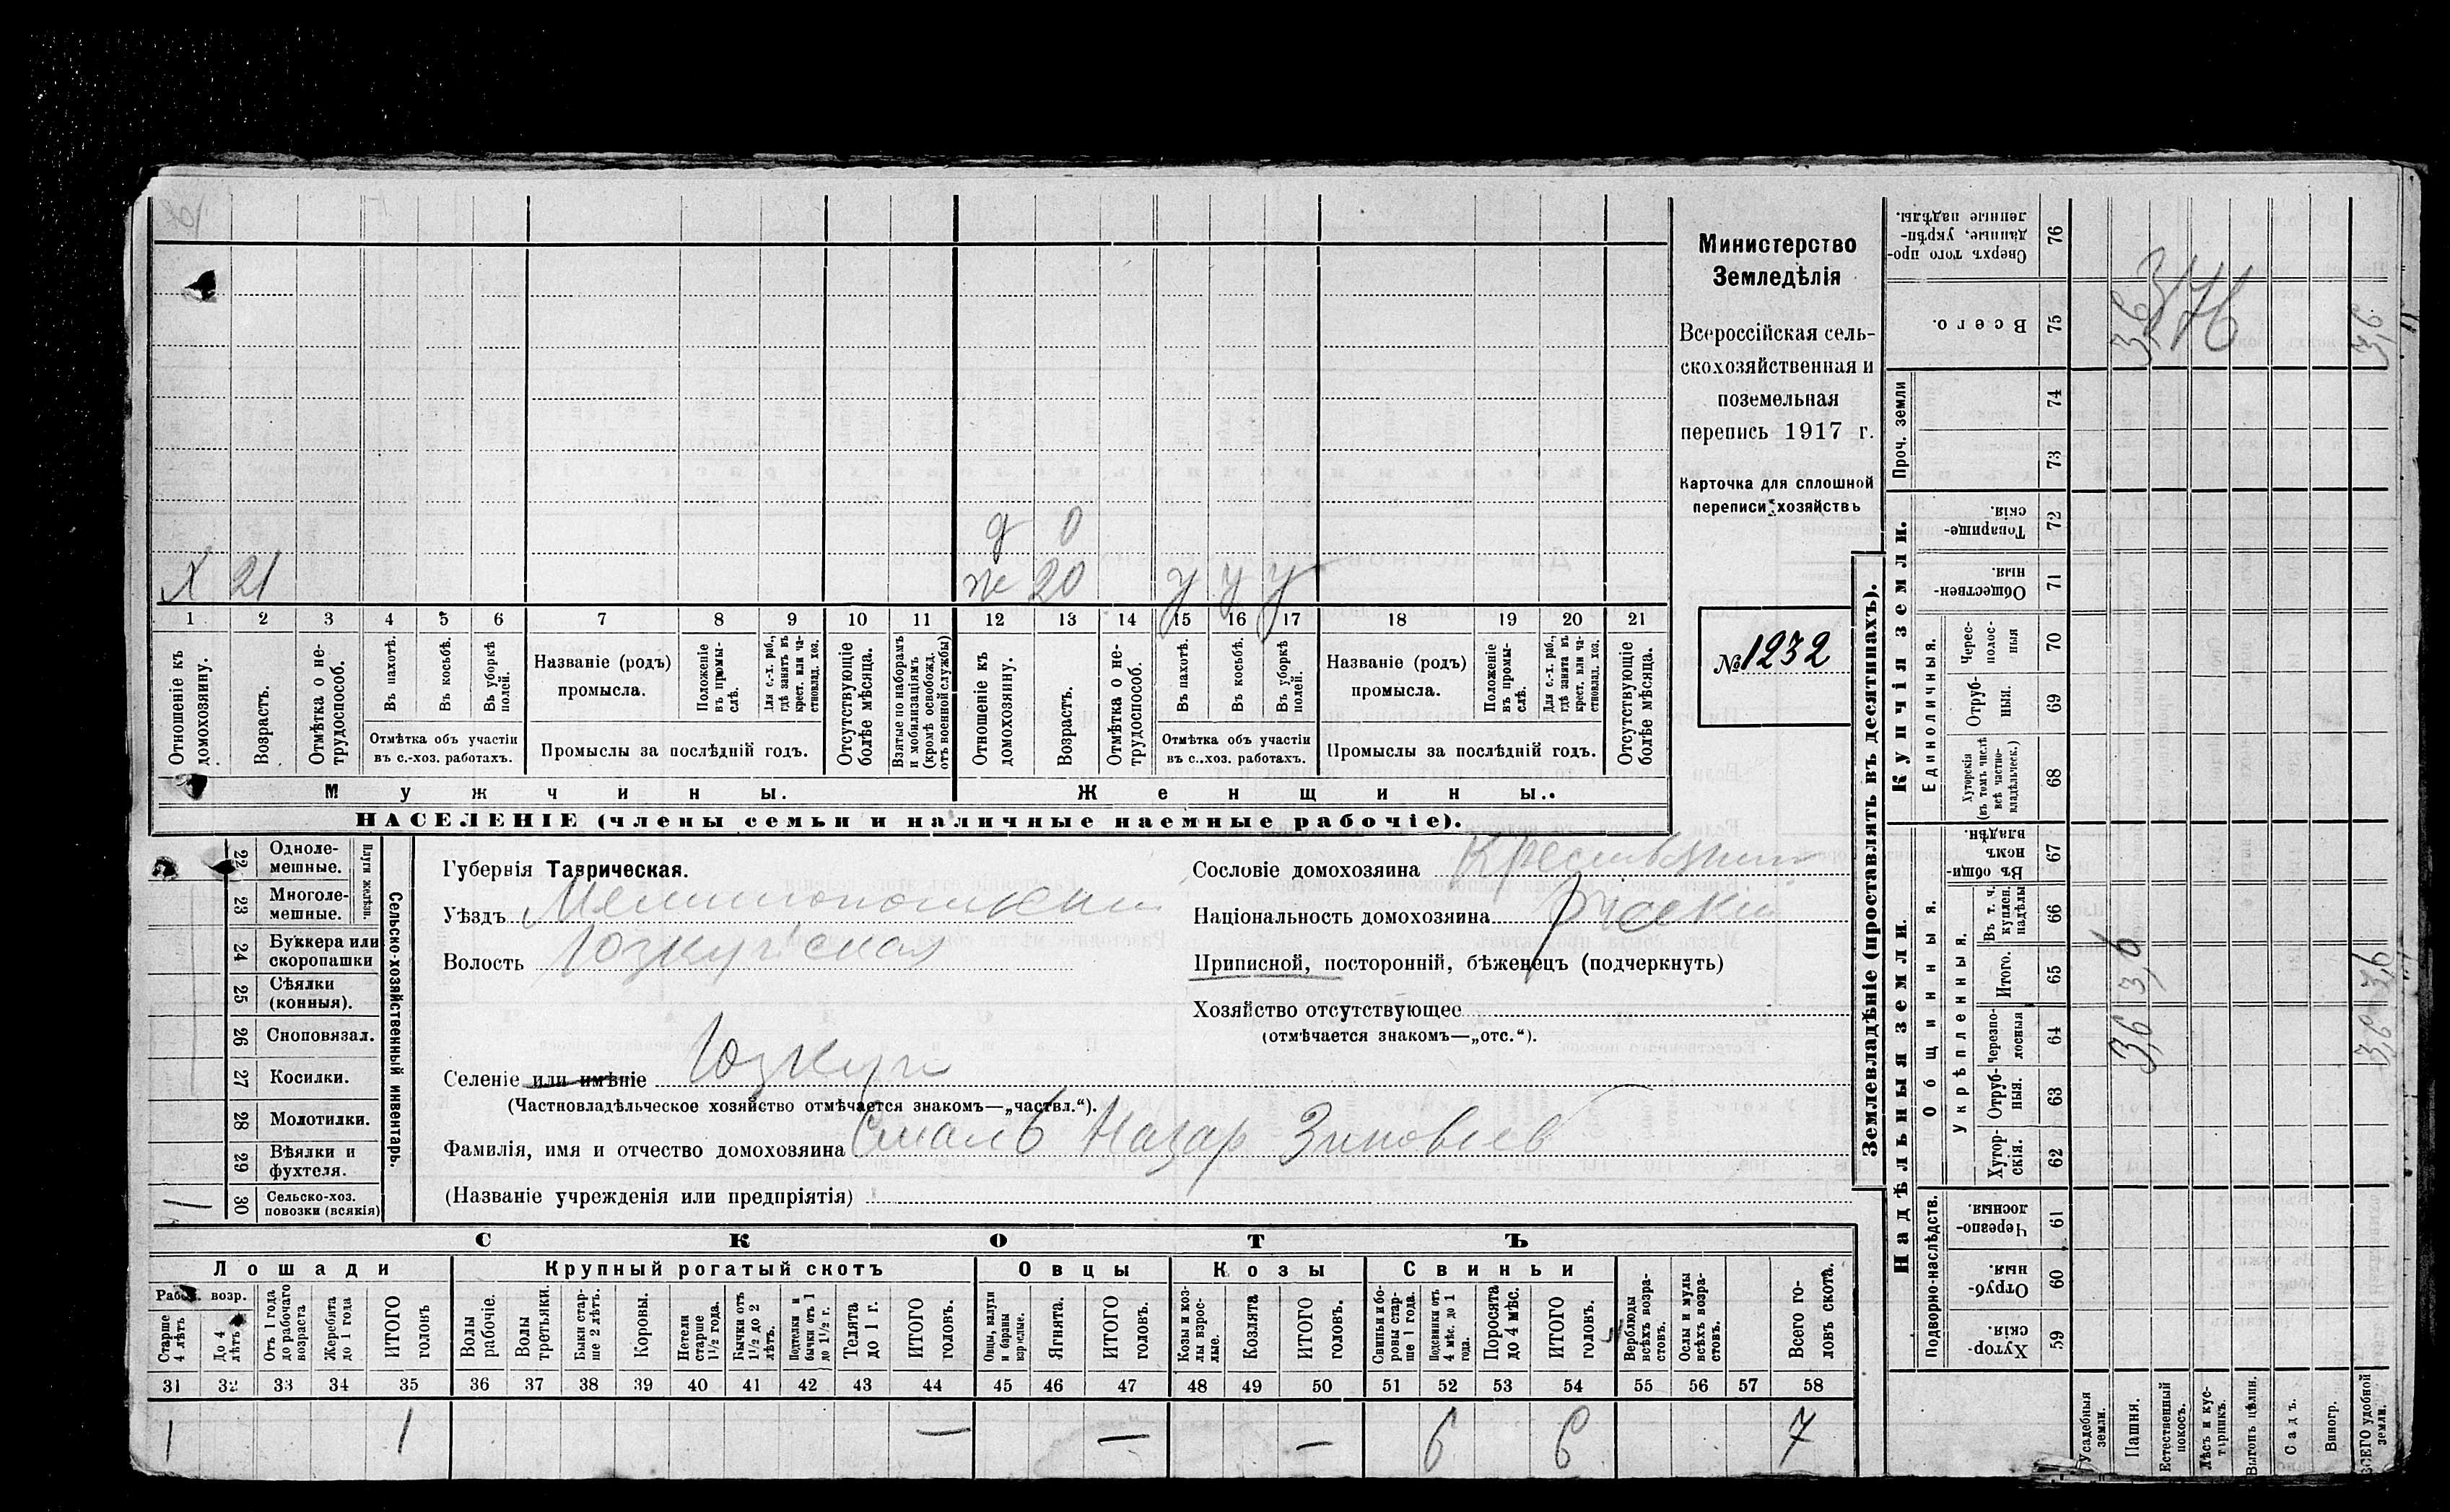 Х 21
д 0
ж 20 у у у
1 2 3 4 5 6 7 8 9 10 11 12 13 14 15 16 17 18 19 20 21
Отношеніе къ домохозяину.
Возрастъ.
Отмѣтка о не-трудоспособ.
Въ пахотѣ.
Въ косьбѣ.
Въ уборкѣ полей.
Отмѣтка объ участіи
въ с.-хоз. работахъ.
Названіе (родъ)
промысла.
Положеніе въ промы-слѣ.
Для с.-х. раб., гдѣ занятъ въ крест. или ча-стновлад. хоз.
Промыслы за послѣдній годъ.
Отсутствующіе болѣе мѣсяца.
Взятые по наборамъ и мобилизаціямъ (кромѣ освобожд. отъ военной службы)
Отношеніе къ домохозяину.
Возрастъ.
Отмѣтка о не-трудоспособ.
Въ пахотѣ.
Въ косьбѣ.
Въ уборкѣ полей.
Отмѣтка объ участіи
въ с..хоз. работахъ.
Названіе (родъ)
промысла.
Положеніе въ промы-слѣ.
Для с.-х. раб., гдѣ занята въ крест. или ча-стновлад. хоз.
Промыслы за послѣдній годъ.
Отсутствующіе болѣе мѣсяца.
Мужчины. Женщины.
НАСЕЛЕНІЕ (члены семьи и наличные наемные рабочіе).
Министерство
Земледѣлія
Всероссійская сель-
скохозяйственная и
поземельная
перепись 1917 г.
Карточка для сплошной
переписи хозяйствъ
№ 1232
Сельско-хозяйственный инвентарь.
Плуги желѣзн.
22 Одноле-мешные.
23 Многоле-мешные.
24 Буккера или скоропашки
25 Сѣялки (конныя).
26 Сноповязал.
27 Косилки.
28 Молотилки.
29 Вѣялки и фухтеля.
1 30 Сельско-хоз. повозки (всякія)
Губернія Таврическая.
Уѣздъ Мелитопольскій
Волость Юзкуйская
Селеніе или имѣніе Юзкуи
(Частновладѣльческое хозяйство отмѣчается знакомъ—„частвл.“).
Фамилія, имя и отчество домохозяина Смаль Назар Зиновьев
(Названіе учрежденія или предпріятія)
Сословіе домохозяина Крестьянин
Національность домохозяина
Приписной, посторонній, бѣженецъ (подчеркнуть)
Хозяйство отсутствующее
(отмѣчается знакомъ—„отс.“).
СКОТЪ
Лошади Крупный рогатый скотъ Овцы Козы Свиньи
Рабоч. возр.
Старше 4 лѣтъ
До 4 лѣтъ
Отъ 1 года до рабочаго возраста
Жеребята до 1 года
ИТОГО головъ
Волы рабочіе.
Волы третьяки.
Быки стар-ше 2 лѣтъ.
Коровы.
Нетели старше 1½ года.
Бычки отъ 1½ до 2 лѣтъ.
Подтелки и бычки отъ 1 до 1½ г.
Телята до 1 г.
ИТОГО головъ.
Овцы, валухи и бараны взрослые.
Ягнята.
ИТОГО головъ.
Козы и коз-лы взрос-лые.
Козлята
ИТОГО головъ.
Свиньи и бо-ровы стар-ше 1 года.
Подсвинки отъ 4 мѣс. до 1 года.
Поросята до 4 мѣс.
ИТОГО головъ.
Верблюды всѣхъ возра-стовъ.
Ослы и мулы всѣхъ возра-стовъ.
Всего го-ловъ скота.
31 32 33 34 35 36 37 38 39 40 41 42 43 44 45 46 47 48 49 50 51 52 53 54 55 56 57 58
1 1 — — — 6 6 7
Землевладѣніе (проставлять въ десятинахъ).
Купчія земли.
Надѣльныя земли.
Сверхъ того про-данные, укрѣп-ленные надѣлы. 76
Всего. 75 3,6 3,6
Проч. земли 74
73
Товарище-скія. 72
Обществен-ныя. 71
Единоличныя.
Черес-полос-ныя 70
Отруб-ныя. 69
Хуторскія (въ томъ числѣ всѣ частно-владѣльческ.) 68
Общинныя.
Въ общин-номъ владѣн. 67
Укрѣпленныя.
Въ т. ч. куплен. надѣлы 66
Итого. 65 3,6 3,6
Черезпо-лосныя 64 3,6 3,6
Отруб-ныя. 63
Хутор-скія. 62
Подворно-наслѣдств.
Черезпо-лосныя. 61
Отруб-ныя. 60
Хутор-скія. 59
Усадебныя земли.
Пашня.
Естественный покосъ.
Лѣсъ и кус-тарникъ.
Выгонъ цѣлин.
Садъ.
Виногр.
ВСЕГО удобной земли.